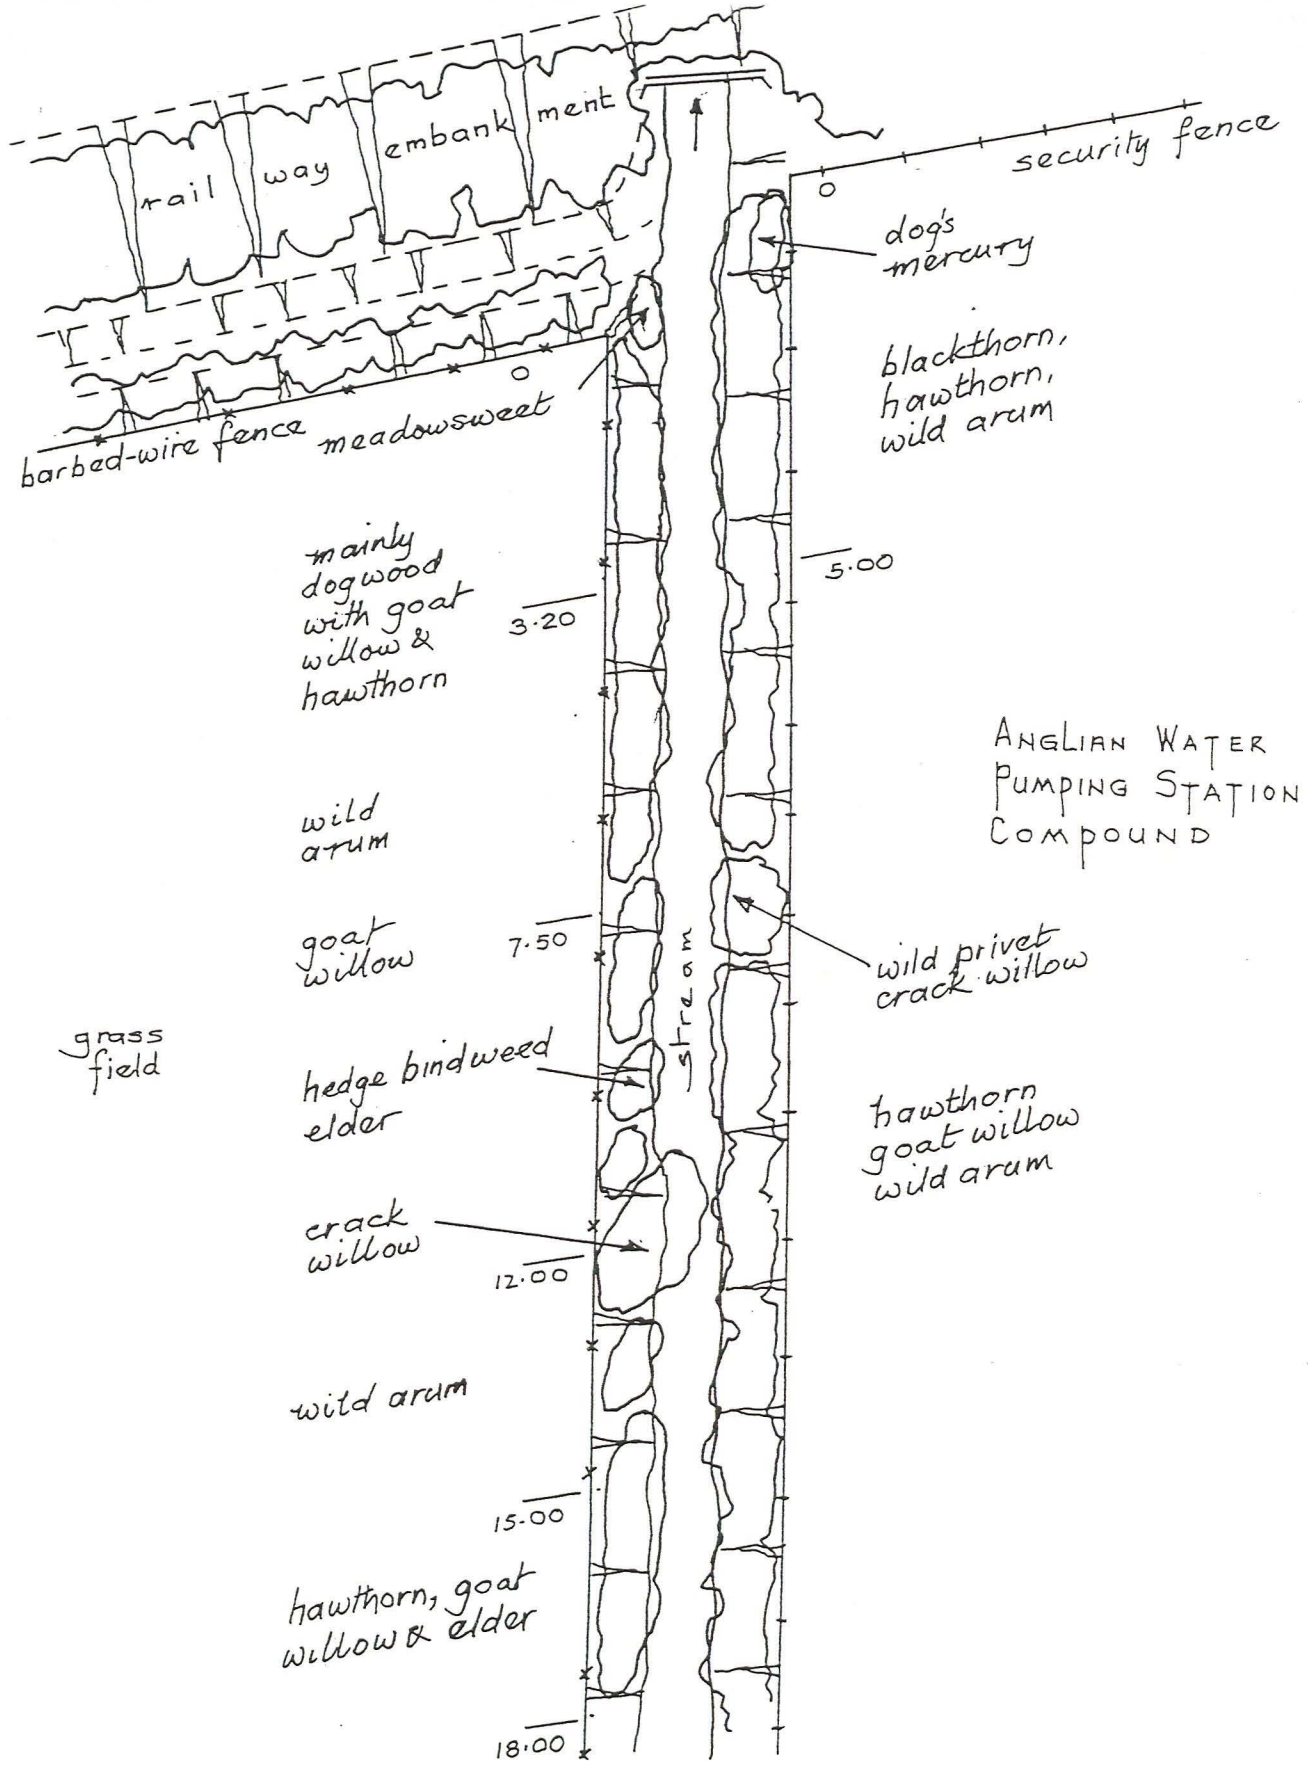 rail
way
embank
ment
security fence
0
dog's
mercury
blackthorn,
hawthorn,
wild arum
5.00
0
meadowsweet
barbed-wire fence
mainly
dogwood
with goat
willow &
hawthorn
3.20
ANGLIAN WATER
PUMPING STATION
COMPOUND
wild
arum
goat
willow
7.50
stream
wild privet
crack willow
grass
field
hedge bindweed
elder
hawthorn
goat willow
wild arum
crack
willow
12.00
wild arum
15.00
hawthorn, goat
willow & elder
18.00